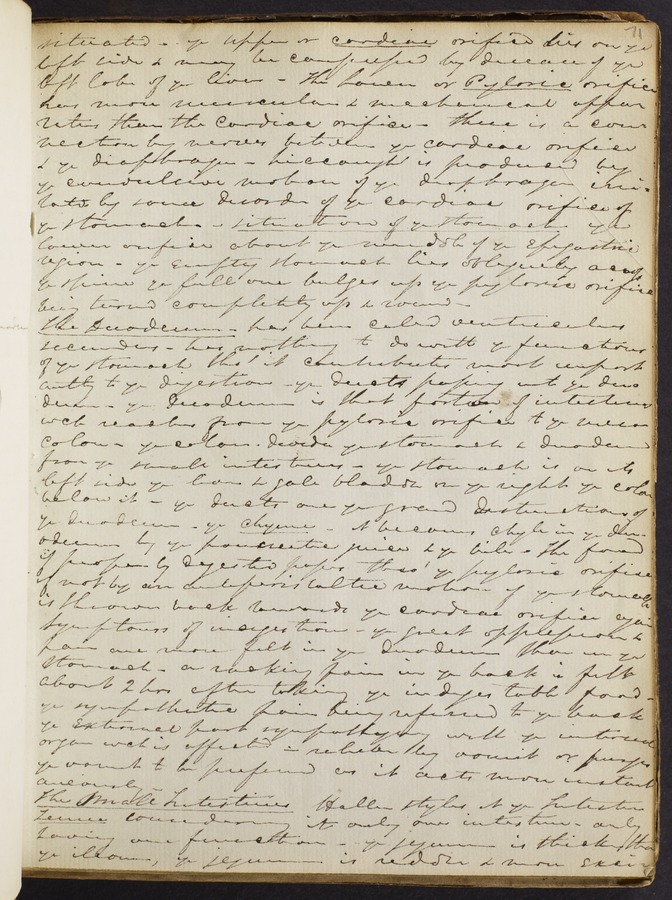 71
situated - ye upper or cardiac orifice lies on ye
left side & may be compressed by disease of ye
left lobe of ye liver - The lower or Pyloric orifice
has more muscular & mechanical appa
ratus than the Cardiac orifice - there is a con
nection by nerves between ye cardiac orifice
& ye diaphragm - hiccough is produced by
ye convulsive motion of ye diaphragm irri-
tated by some disorder of ye cardiac orifice of
ye stomach - situation of ye stomach ye
lower orifice about ye middle of ye Epigastric
region - ye empty stomach lies obliquely across
ye spine ye full one bulges up ye pyloric orifice
being turned completely up & round -
The Duodenum - has been called ventriculus
secundus - has nothing to do with ye functions
of ye stomach tho' it contributes most import
antly to ye digestion - ye ducts passing into ye duo
denum - ye Duodenum is that portion of intestines
wch reaches from ye pyloric orifice to ye
colon - ye colon divides ye stomach & duodenum
from ye small intestines - ye stomach is on its
left side ye liver & gale bladder on ye right ye colon
below it - ye ducts are ye grand distinctions of
ye duodenum - ye chyme - it becomes chyle in ye duo-
odenum by ye pancreatic juice & ye bile - the food
if properly digested passes thro' ye pyloric orifice
if not by an antiperistaltic motion of ye stomach
is thrown back towards ye cardiac orifice again
symptoms of indigestion - ye great oppression &
pain are more felt in ye Duodenum than in ye
stomach - a racking pain in ye back is felt
about 2 hrs after taking ye indigestible food -
ye sympathetic pain being referred to ye back
ye External part sympathysing with ye internal
organ wch is affected = relieve by vomit or purges
ye vomit to be prefered as it acts more instant
aneously -
The Small Intestines Haller styles it ye Intestin
Tenue considering it only one intestine - only
having one function - ye jejunum is thicker than
ye illeum, ye jejunum is redder & more